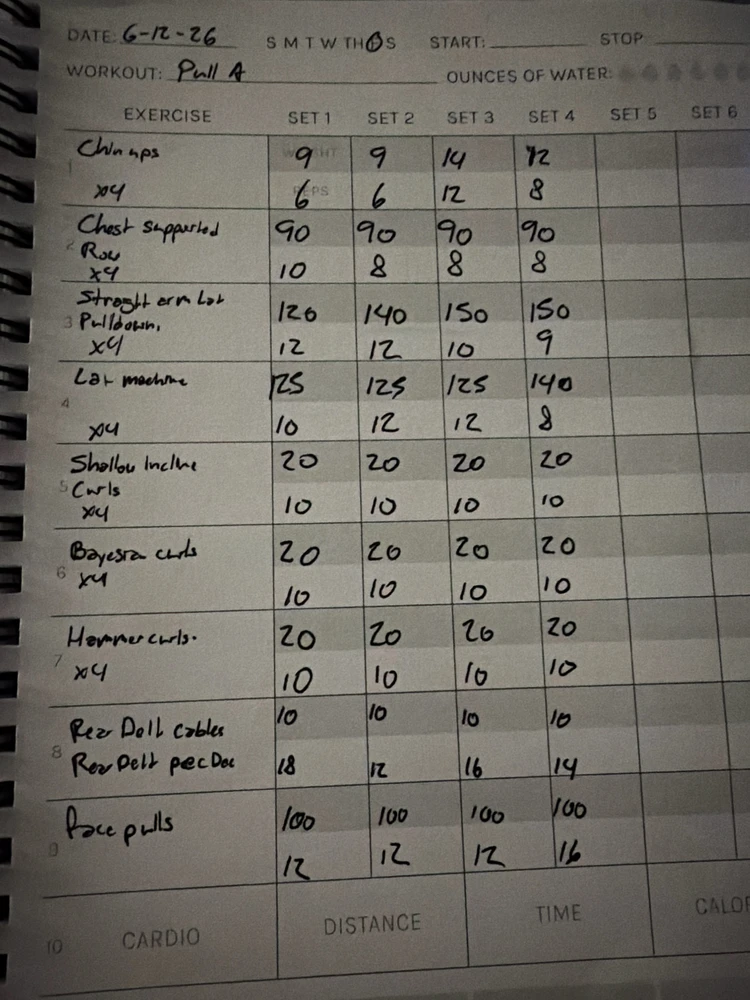 DATE: 6-12-26 S M T W TH F S START: STOP
WORKOUT: Pull A OUNCES OF WATER:
EXERCISE SET 1 SET 2 SET 3 SET 4 SET 5 SET 6
1 Chin ups WEIGHT 9 9 14 12
x4 REPS 6 6 12 8
Chest Supported 90 90 90 90
2 Row
x4 10 8 8 8
Straight arm Lat 120 140 150 150
3 Pulldown,
x4 12 12 10 9
Lat machine 125 125 125 140
4
x4 10 12 12 8
Shallow Incline 20 20 20 20
5 Curls
x4 10 10 10 10
Bayesian curls 20 20 20 20
6 x4 10 10 10 10
Hammer curls. 20 20 20 20
7 x4 10 10 10 10
Rear Delt cables 10 10 10 10
8 Rear Delt pec Dec 18 12 16 14
Face pulls 100 100 100 100
9 12 12 12 16
10 CARDIO DISTANCE TIME